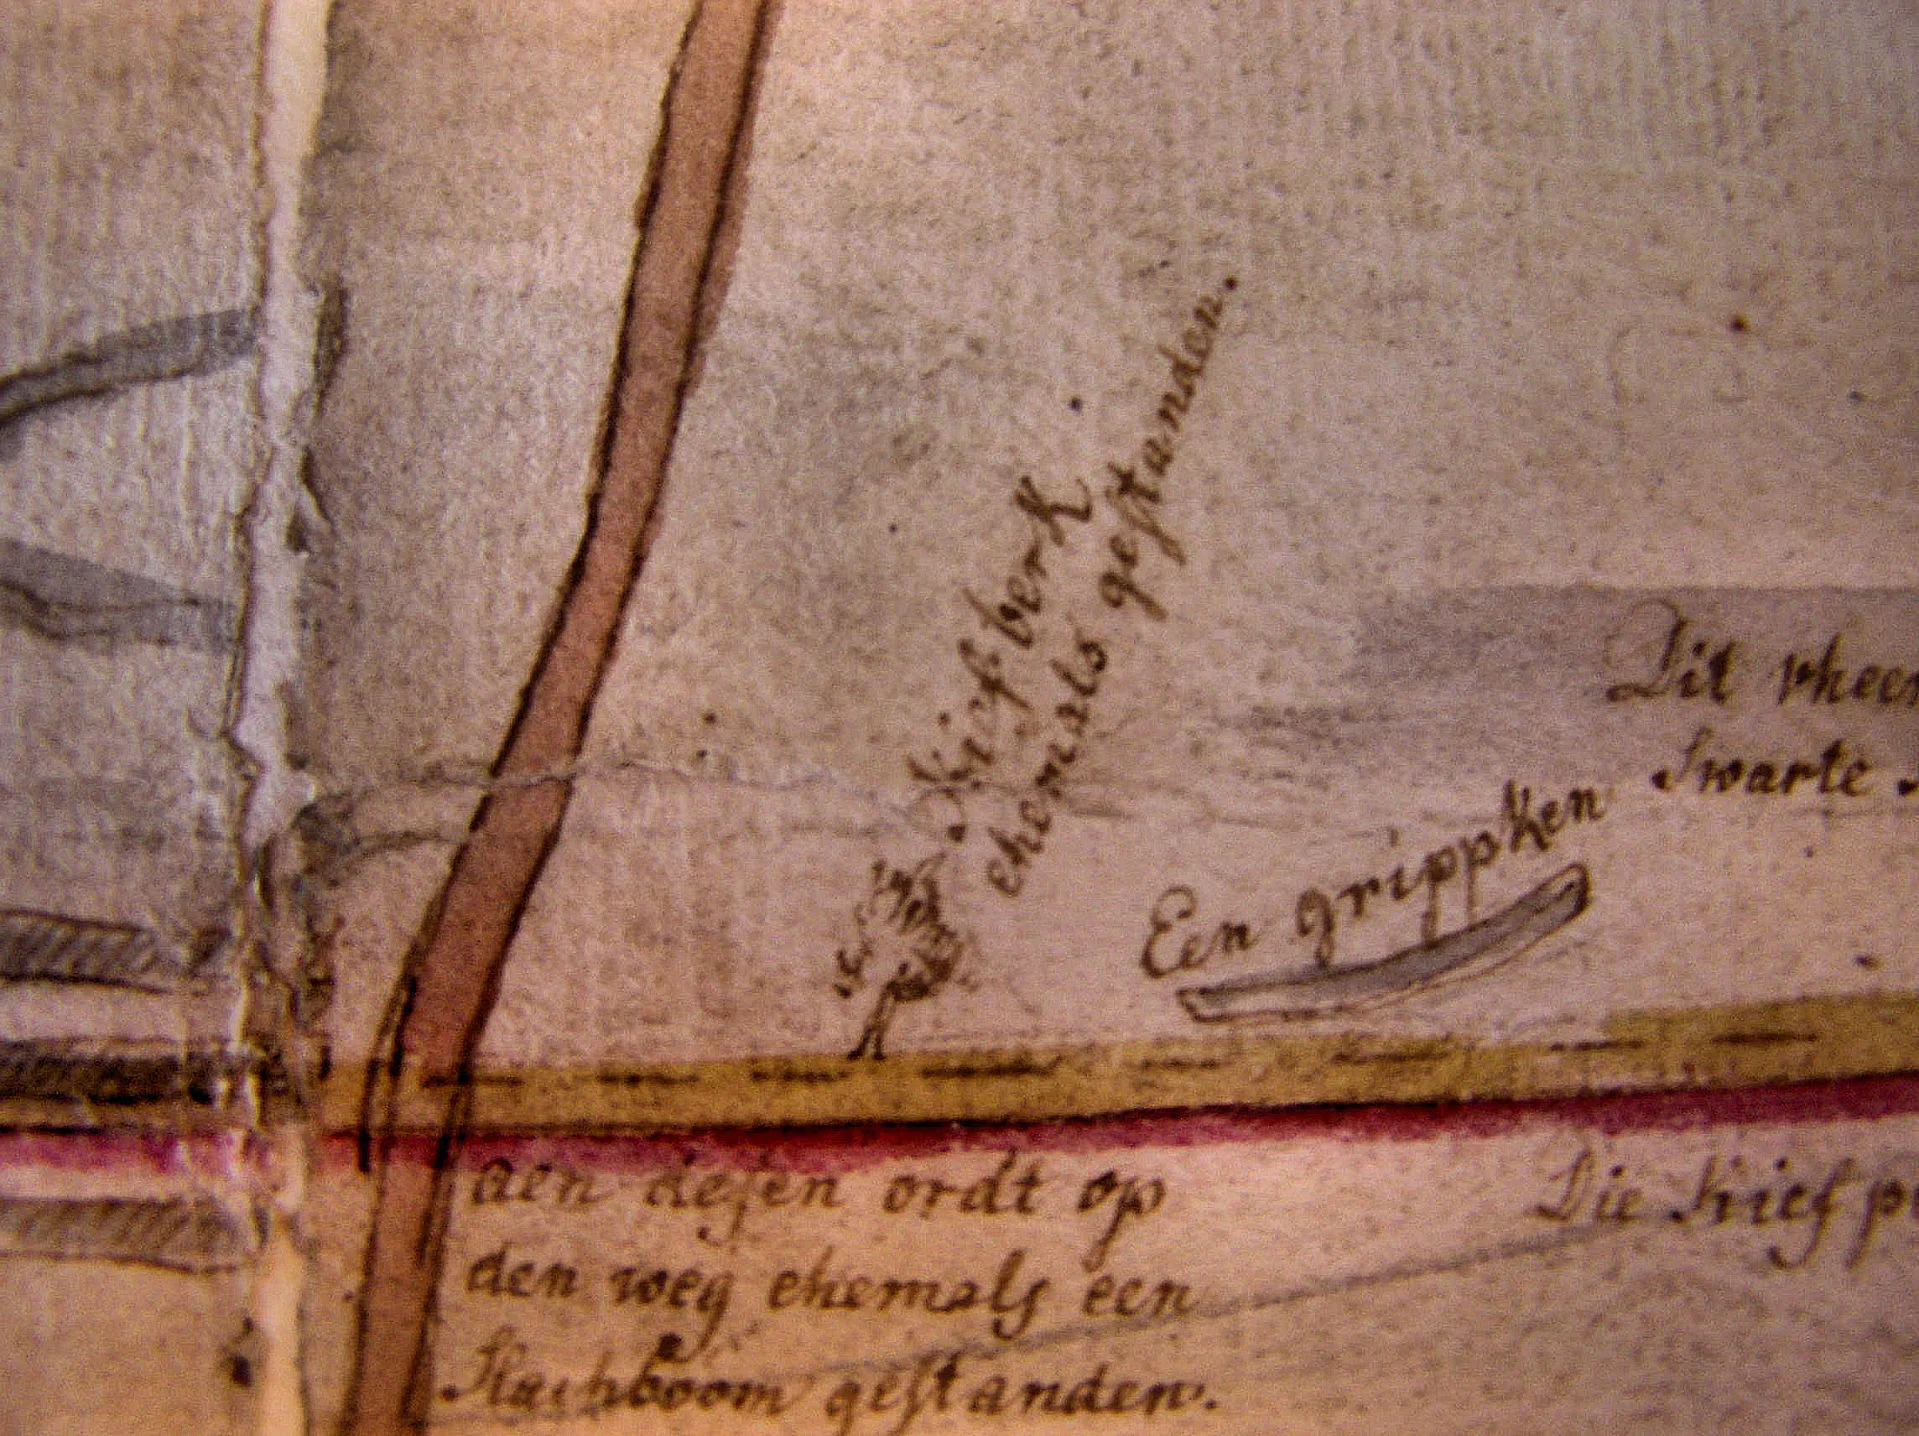 Krief berk
ehemals gestanden.
Dit rheen
Swarte
Een grippken
Die Krief
aen desen ordt op
den weg ehemals een
Slachboom gestanden.